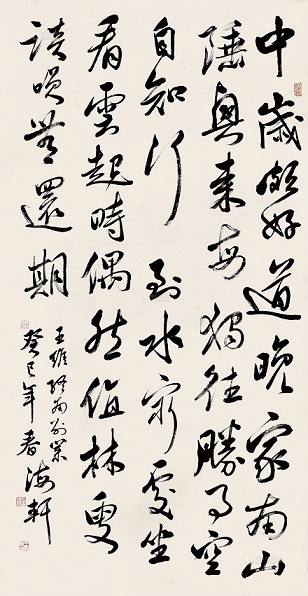 中歲頗好道晚家南山
陲興來每獨往勝事空
自知行到水窮處坐
看雲起時偶然值林叟
談咲無還期
王維終南別業
癸巳年春海軒